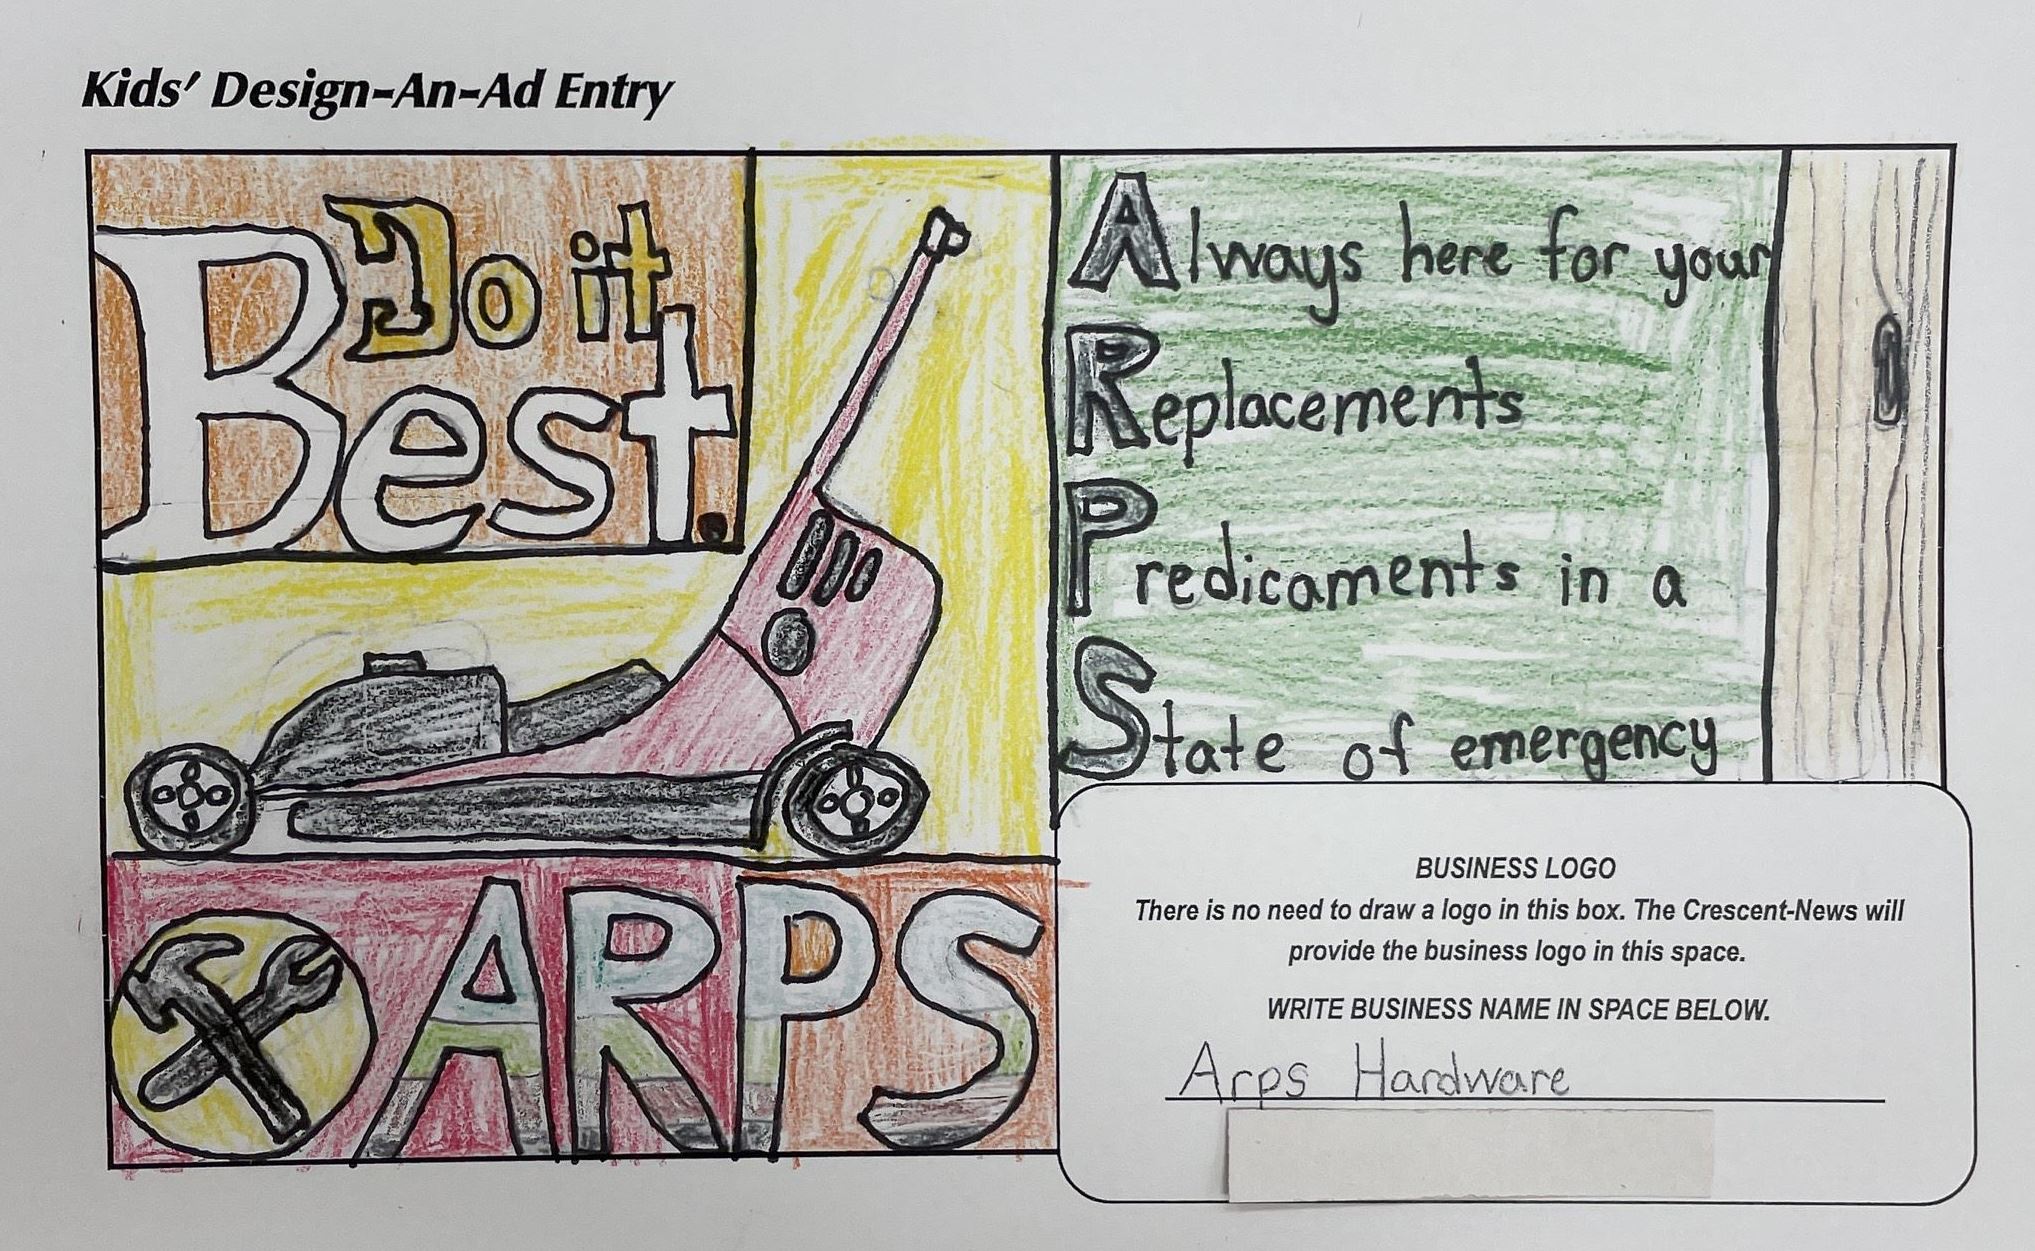 Kids' Design-An-Ad Entry
Do it
Best.
Always here for your
Replacements
Predicaments in a
State of emergency
ARPS
BUSINESS LOGO
There is no need to draw a logo in this box. The Crescent-News will
provide the business logo in this space.
WRITE BUSINESS NAME IN SPACE BELOW.
Arps Hardware